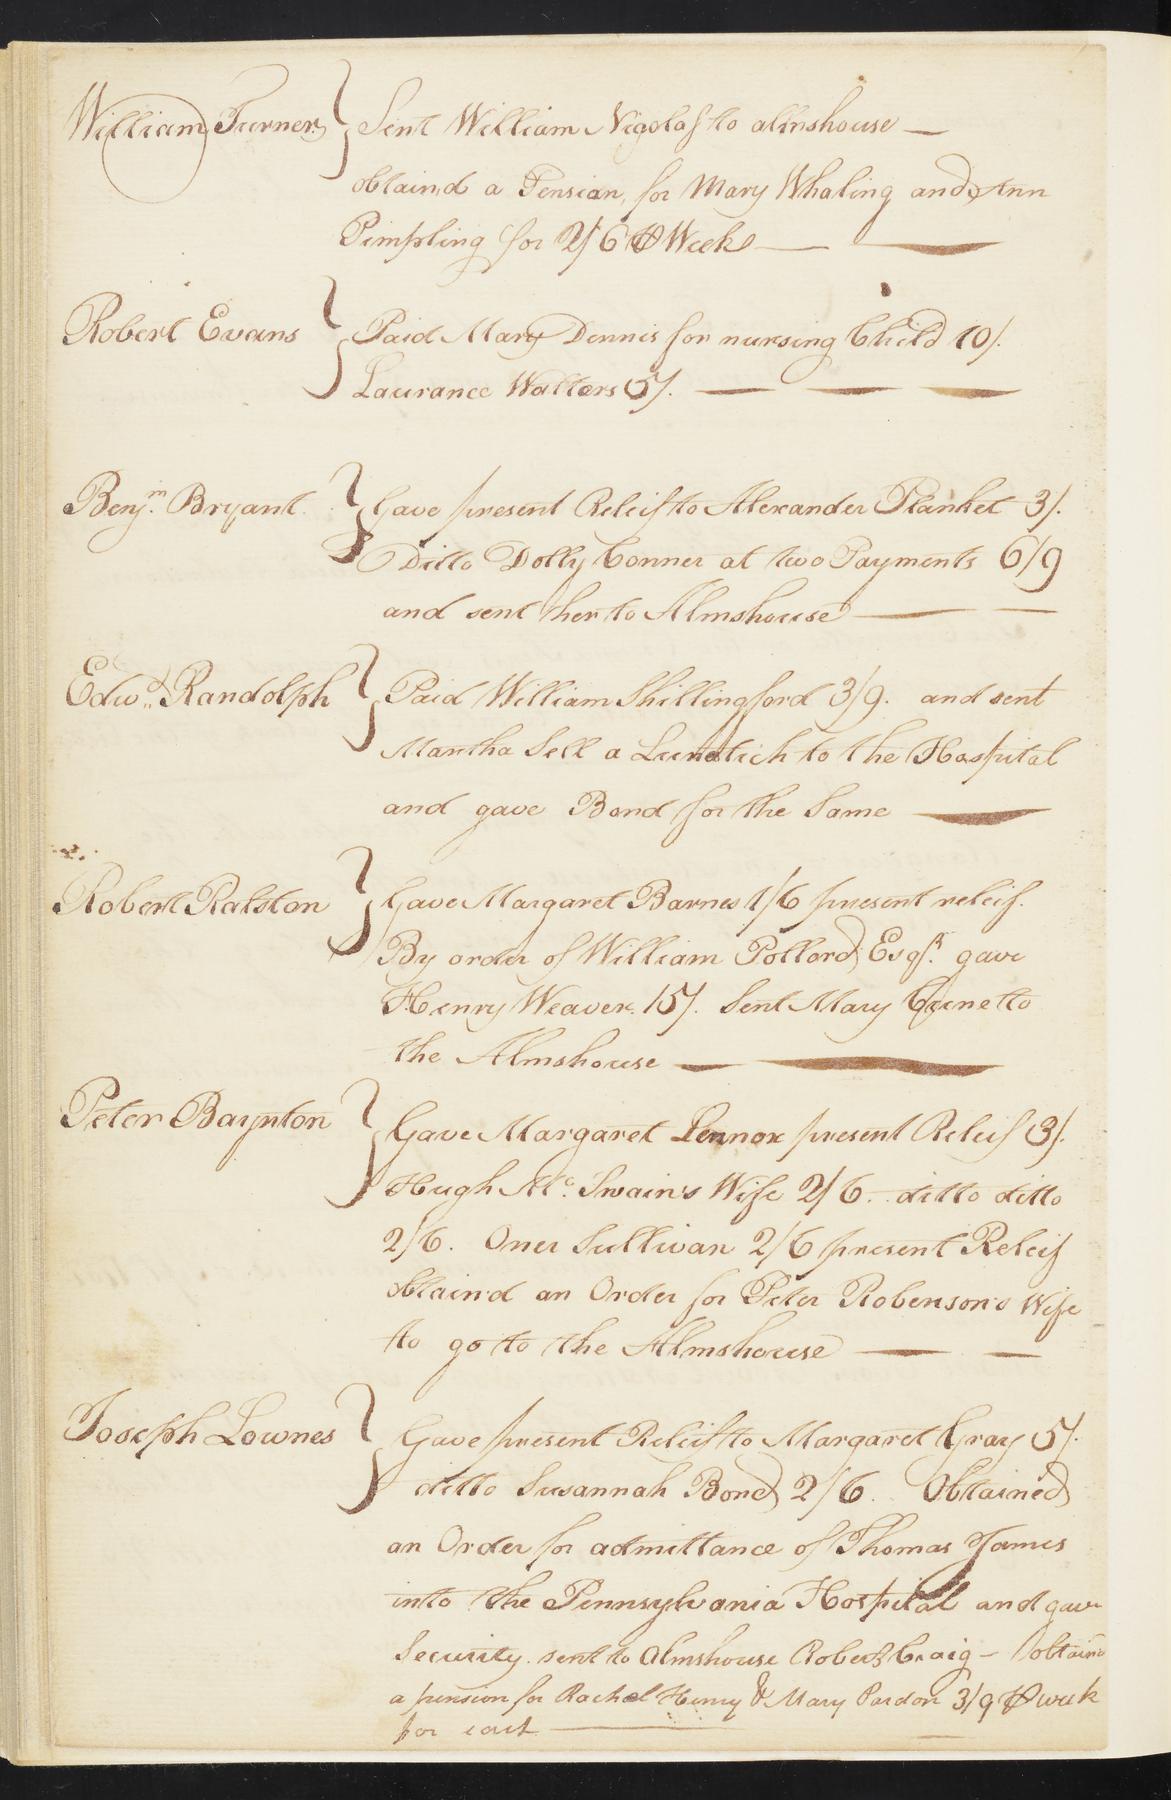 William Turner } Sent William Nigolas to almshouse —
obtaind a Pension, for Mary Whaling and Ann
Pimpling for 2/6 ⅌ Week —
Robert Evans } Paid Mary Dennis for nursing Child 10/.
Laurance Walters 5/. — — —
Benjm. Bryant } Gave present Releif to Alexander Planket 3/.
Ditto Dolly Conner at two Payments 6/9
and sent her to Almshouse — —
Edwd. Randolph } Paid William Shillingford 3/9. and sent
Martha Sell a Lunatick to the Hospital
and gave Bond for the Same —
Robert Ralston } Gave Margaret Barnes 1/6 present releif.
By order of William Pollard Esqr. gave
Henry Weaver 15/. Sent Mary to
the Almshouse — —
Peter Baynton } Gave Margaret Lennox present Releif 3/.
Hugh Mc. Swain's Wife 2/6. ditto ditto
2/6. Oner Sullivan 2/6 present Releif
obtain'd an Order for Peter Robenson's Wife
to go to the Almshouse — —
Joseph Lownes } Gave present Releif to Margaret Gray 5/.
ditto Susannah Bond 2/6. Obtained
an Order for admittance of Thomas James
into the Pennsylvania Hospital and gave
Security. sent to Almshouse Robert Craig — obtaind
a pension for Rachel Henry & Mary Pardon 3/9 ⅌ week
for each —